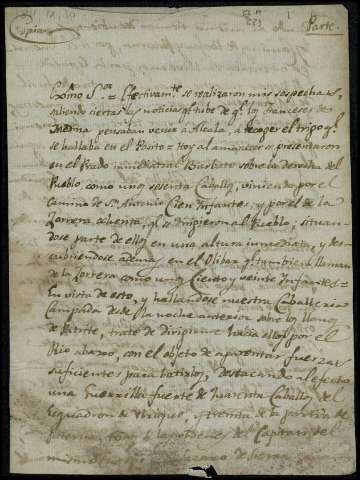 Copia
Parte.
Exmo. Sor. = Efectivamte. se realizaron mis sospechas,
saliendo ciertas las noticias qe. tube de qe. los Franceses de
Medina pensaban venir a Alcala, a recoger el trigo qe.
se hallaba en el Posito = Hoy al amanecer se presentaron
en el Prado sobre la derecha del
Pueblo, como unos sesenta Caballos, viniendo por el
camino de Sn. Antonio Cien Infantes, y por el de la
Zorrera ochenta, qe. se dirigieron al Pueblo; situan-
dose parte de ellos en una altura inmediata, y des-
cubriendose ademas en el Olibar qe. tambien llaman
de la Zorrera como unos Ciento y veinte Infantes =
En vista de esto, y hallandose nuestra Caballeria
Campada desde la noche anterior sobre los llanos
de Patrite, trate de dirigirme hacia ellos por el
Rio abaxo, con el objeto de aparentar fuerzas
suficientes para batirlos, destacando al efecto
una Guerrilla fuerte de quarenta Caballos del
Esquadron de y treinta de la partida de
todos a las ordenes del Capitan del
mismo